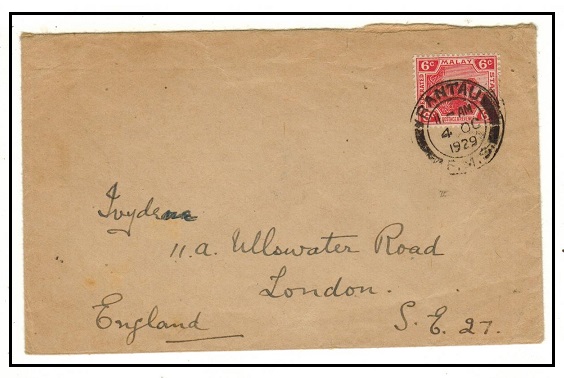 6c MALAY 6c
RANTAU
11 - AM
4 OC
1929
F.M.S
Ivydene
11.a. Ullswater Road
London.
England S.E. 27.